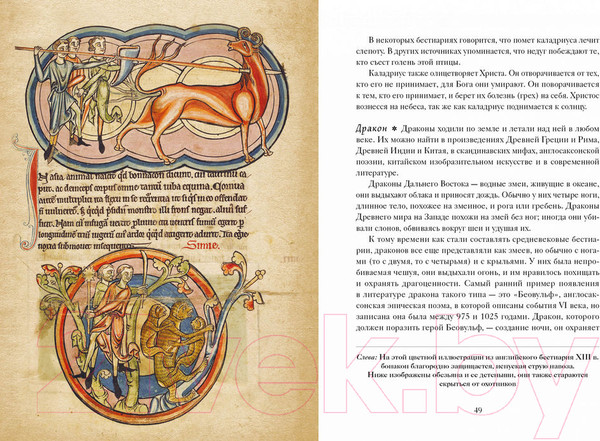 asia animal
put. ac deinceps corpus omne tantum iuba equina. Cornua
multiplici ita flexu in se
illi frons negat. alvus
Nam cum in fugam
longitudine
noxia submovet insequentes. Simie.
В некоторых бестиариях говорится, что помет каладриуса лечит
слепоту. В других источниках упоминается, что недуг побеждают те,
кто съест голень этой птицы.
Каладриус также олицетворяет Христа. Он отворачивается от тех,
кто его не принимает, для Бога они умирают. Он поворачивается
к тем, кто его принимает, и берет их болезнь (грех) на себя. Христос
вознесся на небеса, так же как каладриус поднимается к солнцу.
Дракон ✱ Драконы ходили по земле и летали над ней в любом
веке. Их можно найти в произведениях Древней Греции и Рима,
Древней Индии и Китая, в скандинавских мифах, англосаксонской
поэзии, китайском изобразительном искусстве и в современной
литературе.
Драконы Дальнего Востока — водные змеи, живущие в океане,
они выдыхают облака и приносят дождь. Обычно у них четыре ноги,
длинное тело, похожее на змеиное, и рога или гребень. Драконы
Древнего мира на Западе похожи на змей без ног; иногда они уби-
вали слонов, обвиваясь вокруг шеи и удушая их.
К тому времени как стали составлять средневековые бестиа-
рии, драконов все еще представляли как змеев, но обычно с нога-
ми (то с двумя, то с четырьмя) и с крыльями. У них была непро-
биваемая чешуя, они выдыхали огонь, и им нравилось похищать
и охранять драгоценности. Самый ранний пример появления
в литературе дракона такого типа — это «Беовульф», англосак-
сонская эпическая поэма, в которой описаны события VI века, но
записана она была между 975 и 1025 годами. Дракон, которого
должен поразить герой Беовульф, — создание ночи, он охраняет
Слева: На этой цветной иллюстрации из английского бестиария XIII в.
бонакон благородно защищается, испуская струю навоза.
Ниже изображены обезьяна и ее детеныши, они также стараются
скрыться от охотников
49
vek.by